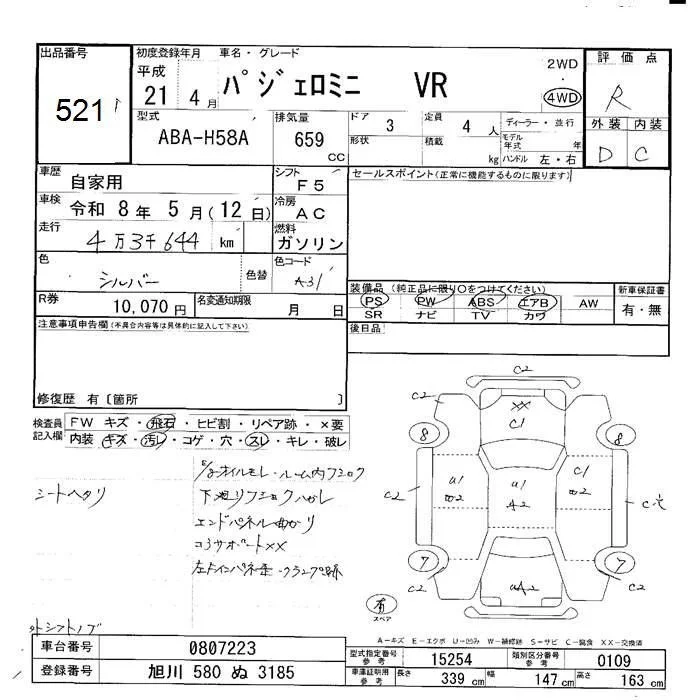 出品番号
521
初度登録年月
平成
21 4月
車名・グレード
パジェロミニ VR
2WD
4WD
評価点
R
外装 内装
D C
型式
ABA-H58A
排気量
659
CC
ドア
3
形状
定員
4 人
積載
kg
ディーラー・並行
モデル年式 年
ハンドル 左・右
車歴
自家用
シフト
F5
セールスポイント(正常に機能するものに限ります)
車検
令和 8年 5月(12日)
冷房
AC
走行
4万3千644 km
燃料
ガソリン
色
シルバー
色替
色コード
A31
装備品(純正品に限り○をつけてください)
PS PW ABS エアB AW
SR ナビ TV カワ
新車保証書
有・無
R券
10,070円
名変通知期限
月 日
後日品
注意事項申告欄(不具合内容等は具体的に記入して下さい)
修復歴 有〔箇所 〕
検査員記入欄
FW キズ・飛石・ヒビ割・リペア跡・×要
内装 キズ・汚レ・コゲ・穴・スレ・キレ・破レ
シートヘタリ
ルーム内フミロク
エンドパネル曲がり
コアサポートXX
外シフトノブ
C2
C2
XX
C1
C2
8
8
U1
U1
A2
C1
C2
C穴
7
7
C2
C2
UA2
有
スペア
A-キズ E-エクボ U-凹み W-補修跡 S-サビ C-腐食 XX-交換済
車台番号
0807223
型式指定番号 参考
15254
類別区分番号 参考
0109
登録番号
旭川 580 ぬ 3185
車庫証明用 参考
長さ 339 cm
幅 147 cm
高さ 163 cm